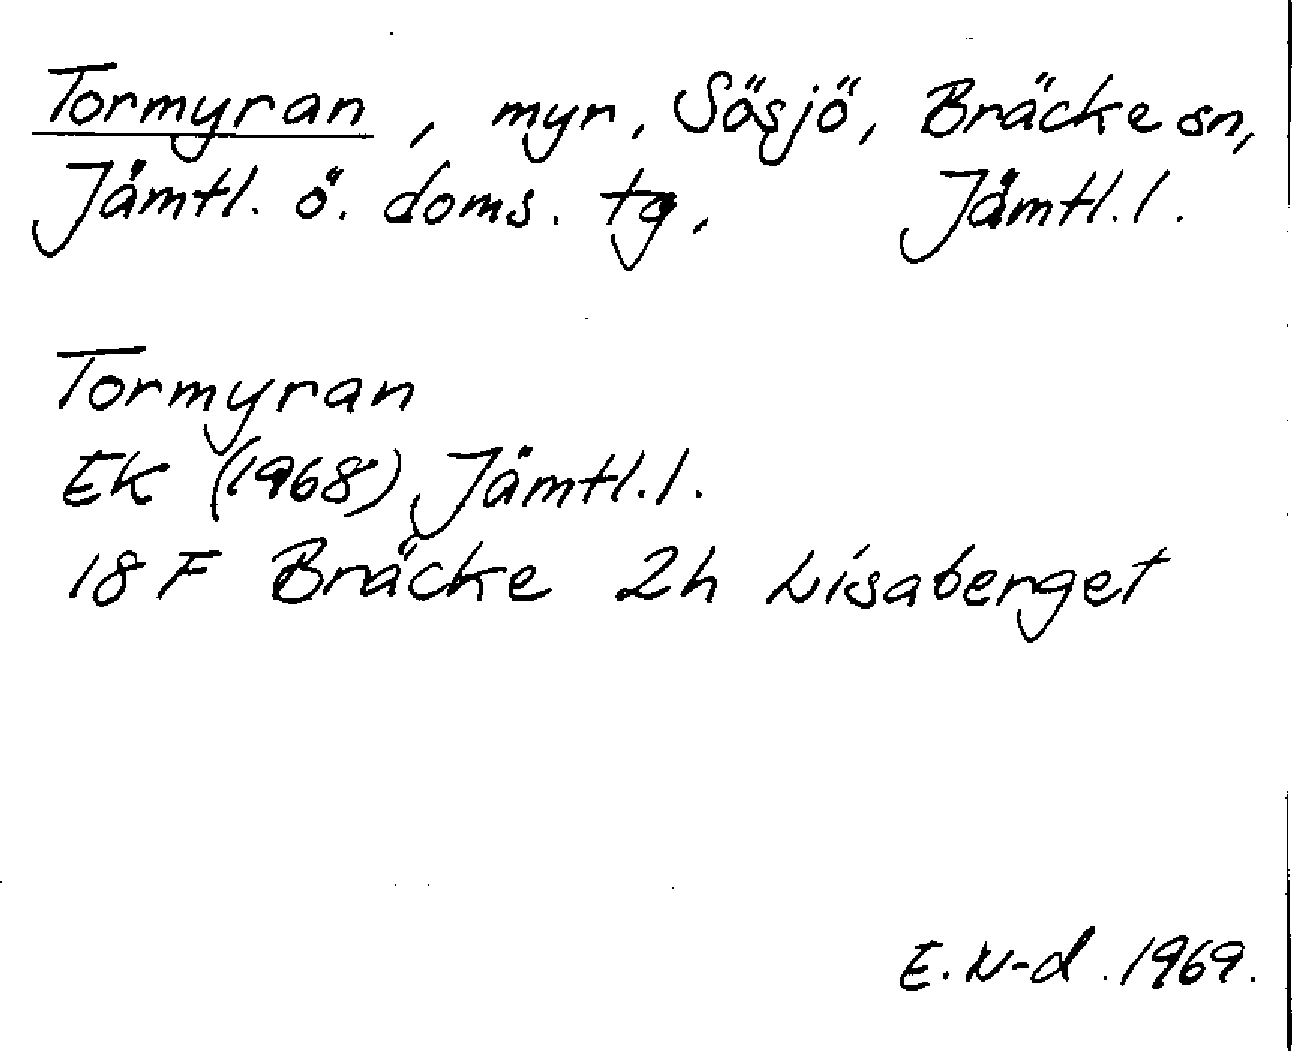 Tormyran, myr, Sösjö, Bräcke sn,
Jämtl. ö. doms. tg, Jämtl. l.
Tormyran
EK (1968) Jämtl. l.
18 F Bräcke 2h Lisaberget
E. N-d. 1969.